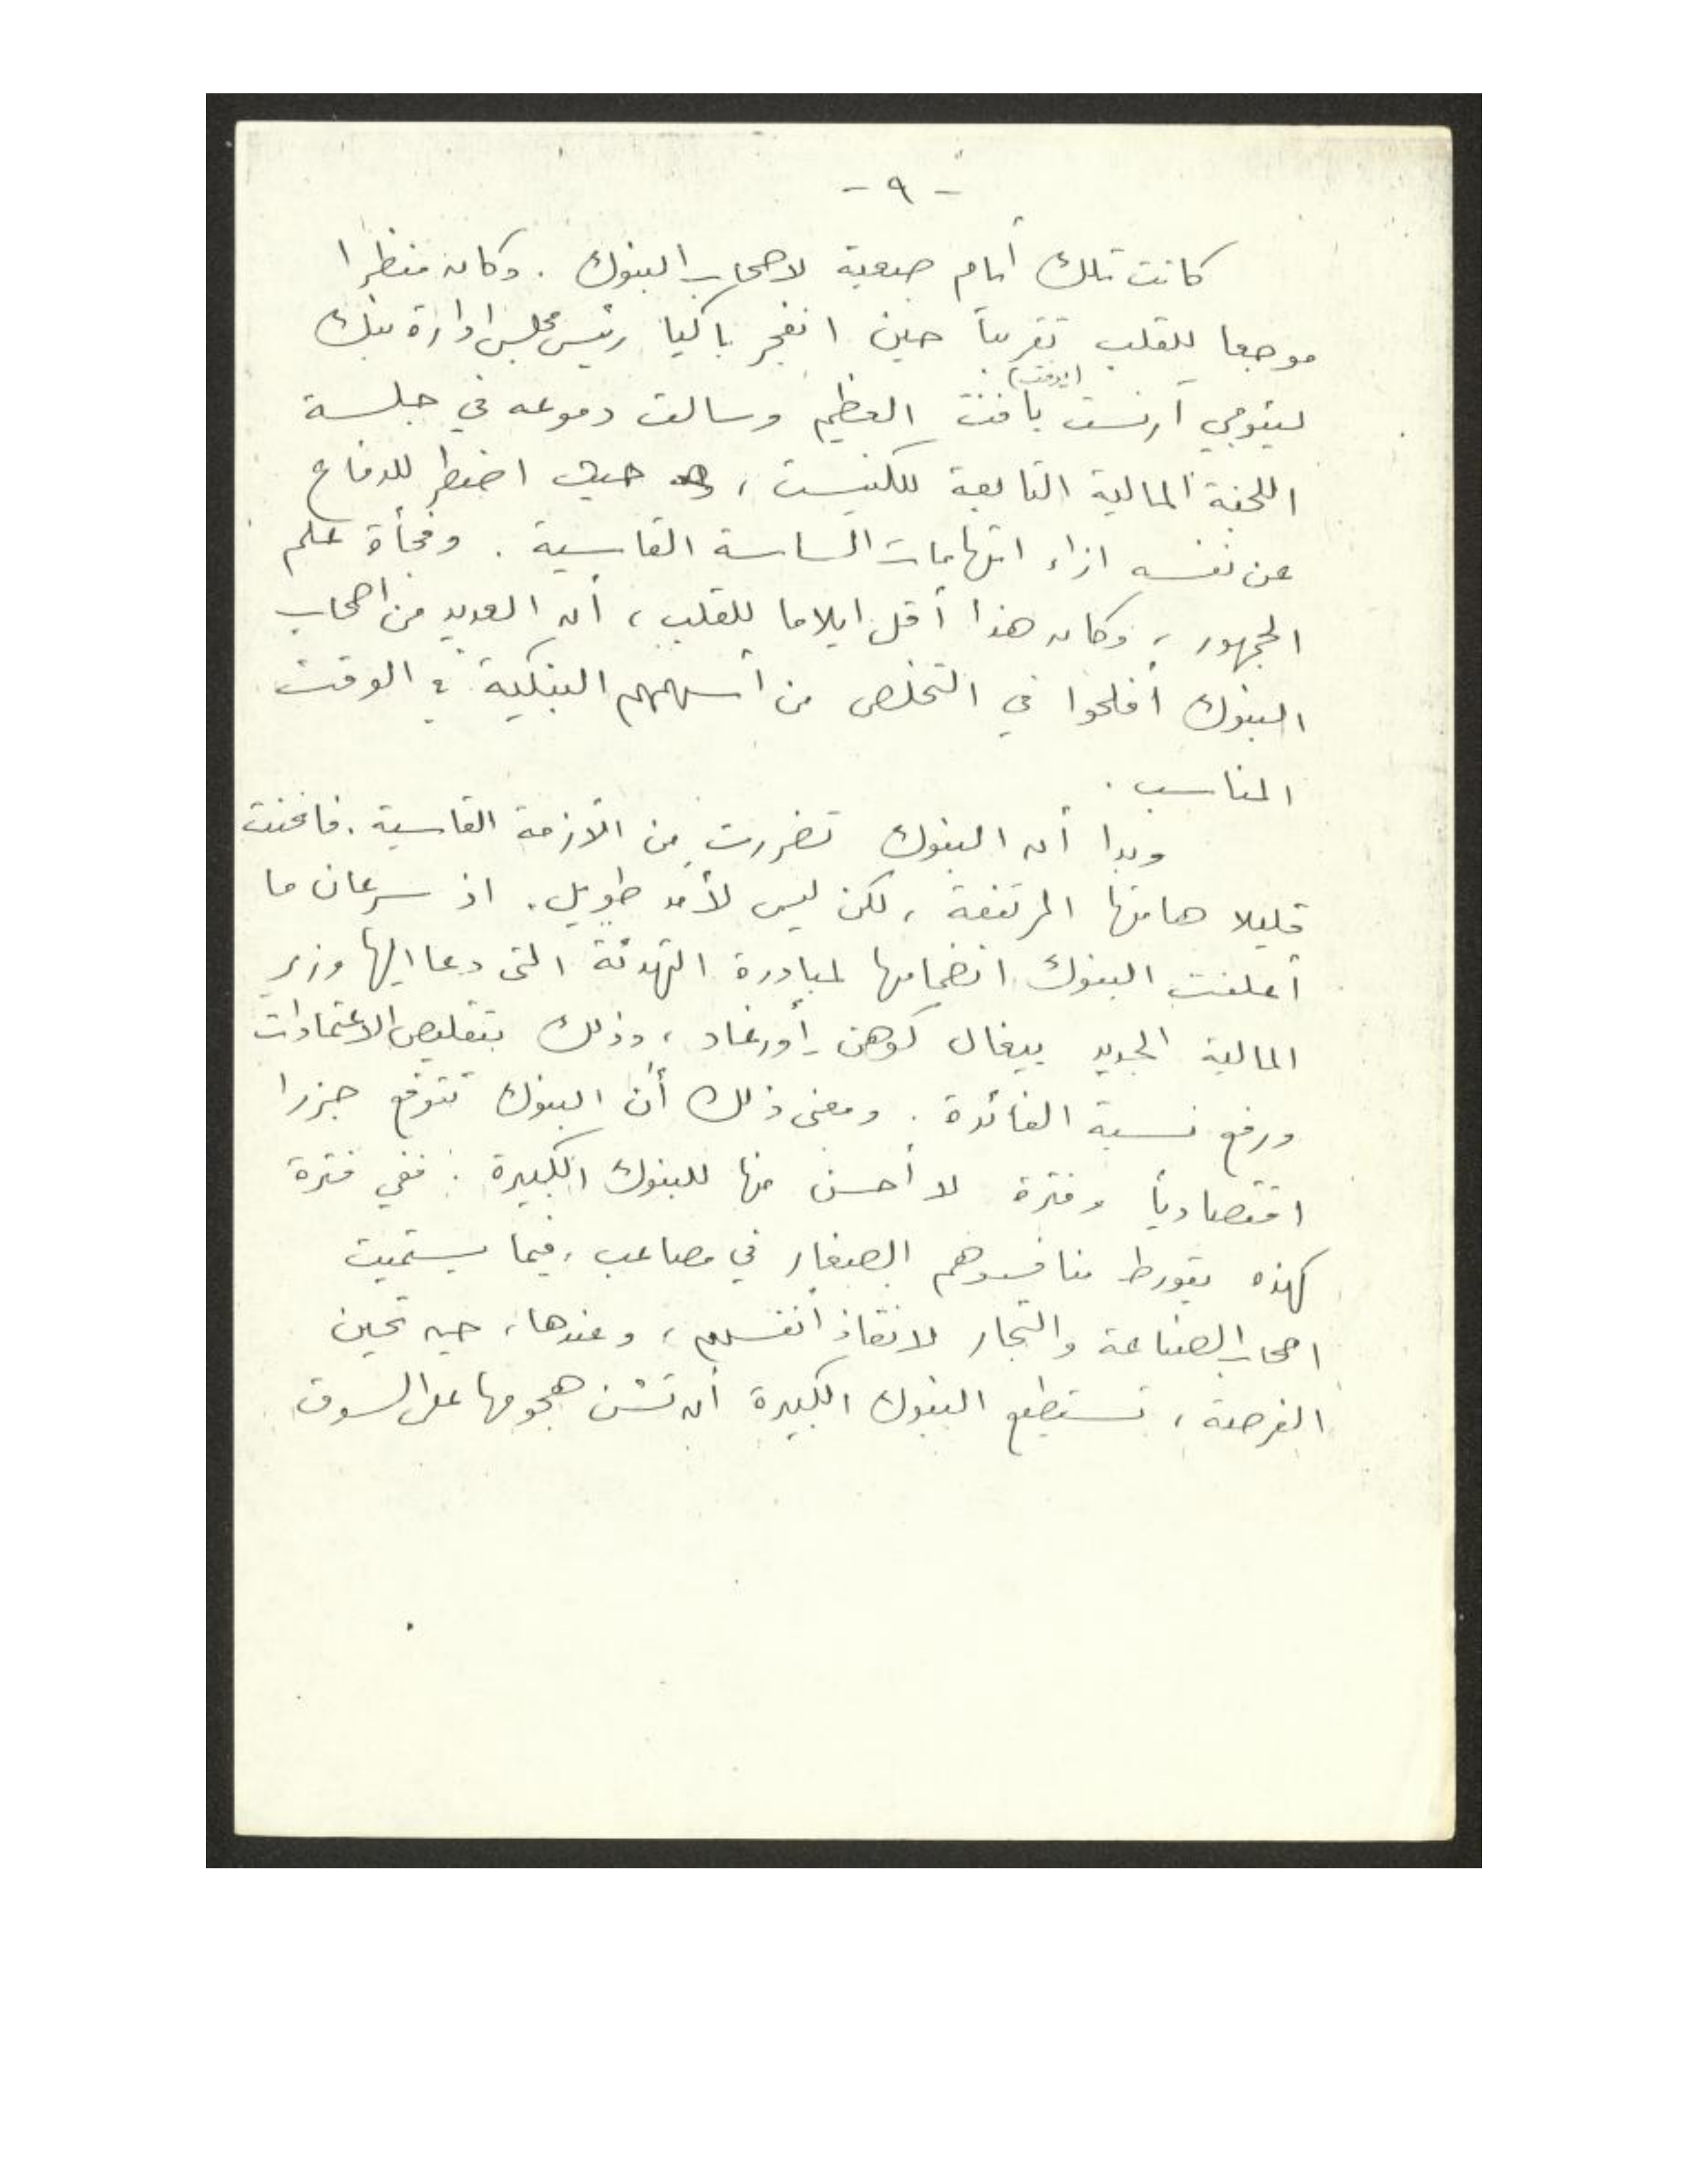 - ٩ -
كانت تلك أيام صعبة لاصحاب البنوك . وكان منظرا
موجعا للقلب تقريباً حين انفجر باكيا رئيس مجلس ادارة بنك
ليئومي أرنست يافت العظيم وسالت دموعه في جلسة
اللجنة المالية التابعة للكنيست ، حيث اضطر للدفاع
عن نفسه ازاء اتهامات الساسة القاسية . وفجأة علم
الجمهور ، وكان هذا أقل ايلاما للقلب ، أن العديد من اصحاب
البنوك أفلحوا في التخلص من أسهمهم البنكية في الوقت
المناسب .
وبدا أن البنوك تضررت من الأزمة القاسية . فانحنت
قليلا هامتها المرتفعة ، لكن ليس لأمد طويل . اذ سرعان ما
أعلنت البنوك انضمامها لمبادرة التهدئة التي دعا اليها وزير
المالية الجديد ييغال كوهن - أورغاد ، وذلك بتقليص الاعتمادات
ورفع نسبة الفائدة . ومعنى ذلك أن البنوك تتوقع جزرا
اقتصادياً وفترة لا أحسن منها للبنوك الكبيرة : ففي فترة
كهذه يتورط منافسوهم الصغار في مصاعب ، فيما يستميت
اصحاب الصناعة والتجار لانقاذ أنفسهم ، وعندها ، حين تحين
الفرصة ، تستطيع البنوك الكبيرة أن تشن هجومها على السوق